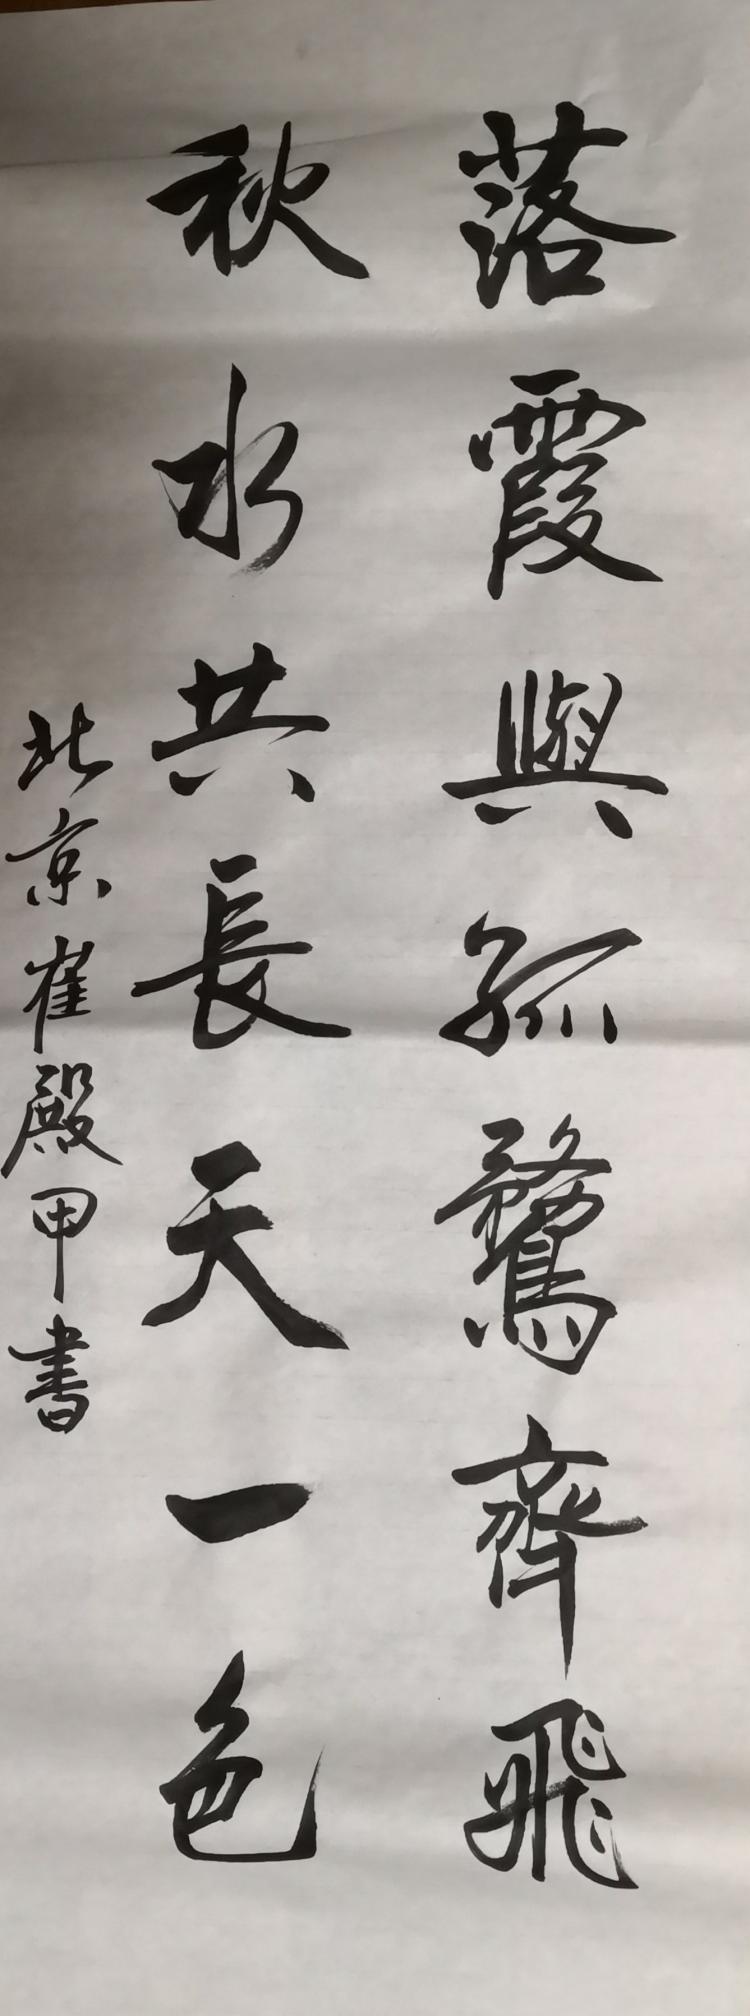 落霞與孤鶩齊飛
秋水共長天一色
北京崔殿甲書